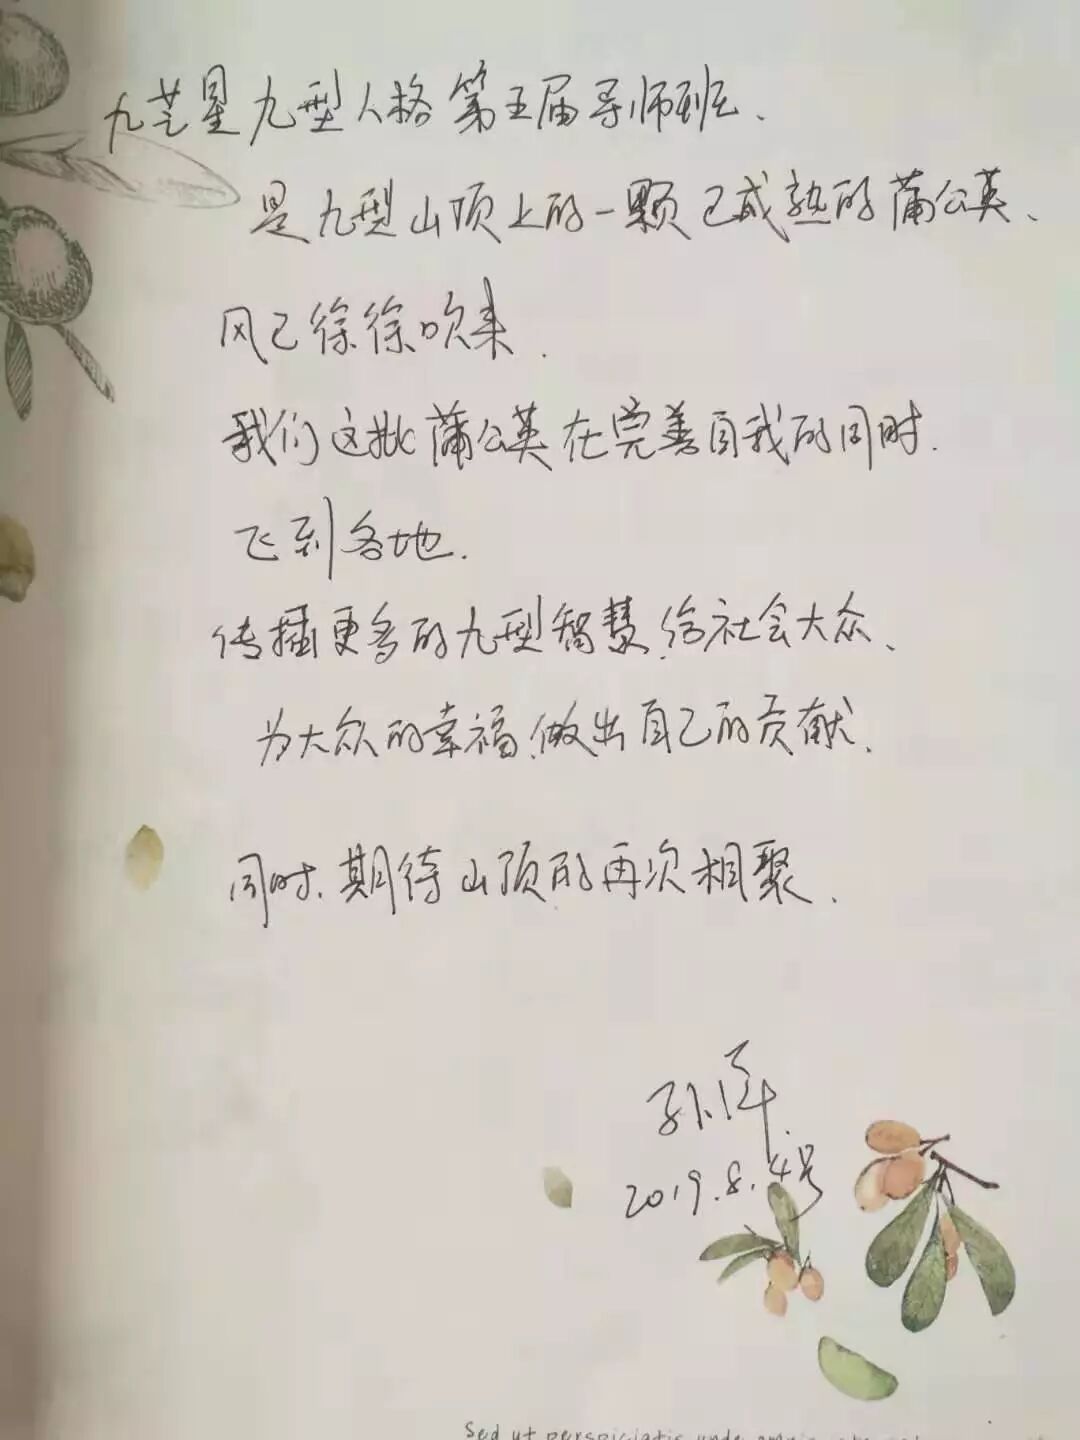 九芒星九型人格第五届导师班、
是九型山顶上的一颗已成熟的蒲公英、
风已徐徐吹来.
我们这批蒲公英在完善自我的同时.
飞到各地.
传播更多的九型智慧,给社会大众、
为大众的幸福,做出自己的贡献、
同时,期待山顶的再次相聚、
2019.8.4号
Sed ut perspiciatis unde omnis